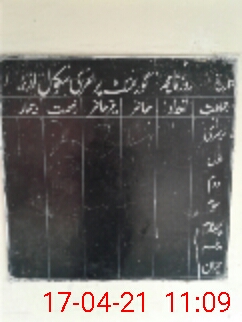 تاریخ روزنامچہ گورنمنٹ پرائمری سکول
جماعت تعداد حاضر غیرحاضر رخصت بیمار
اول
دوم
سوم
چہارم
پنجم
میزان
17-04-21 11:09